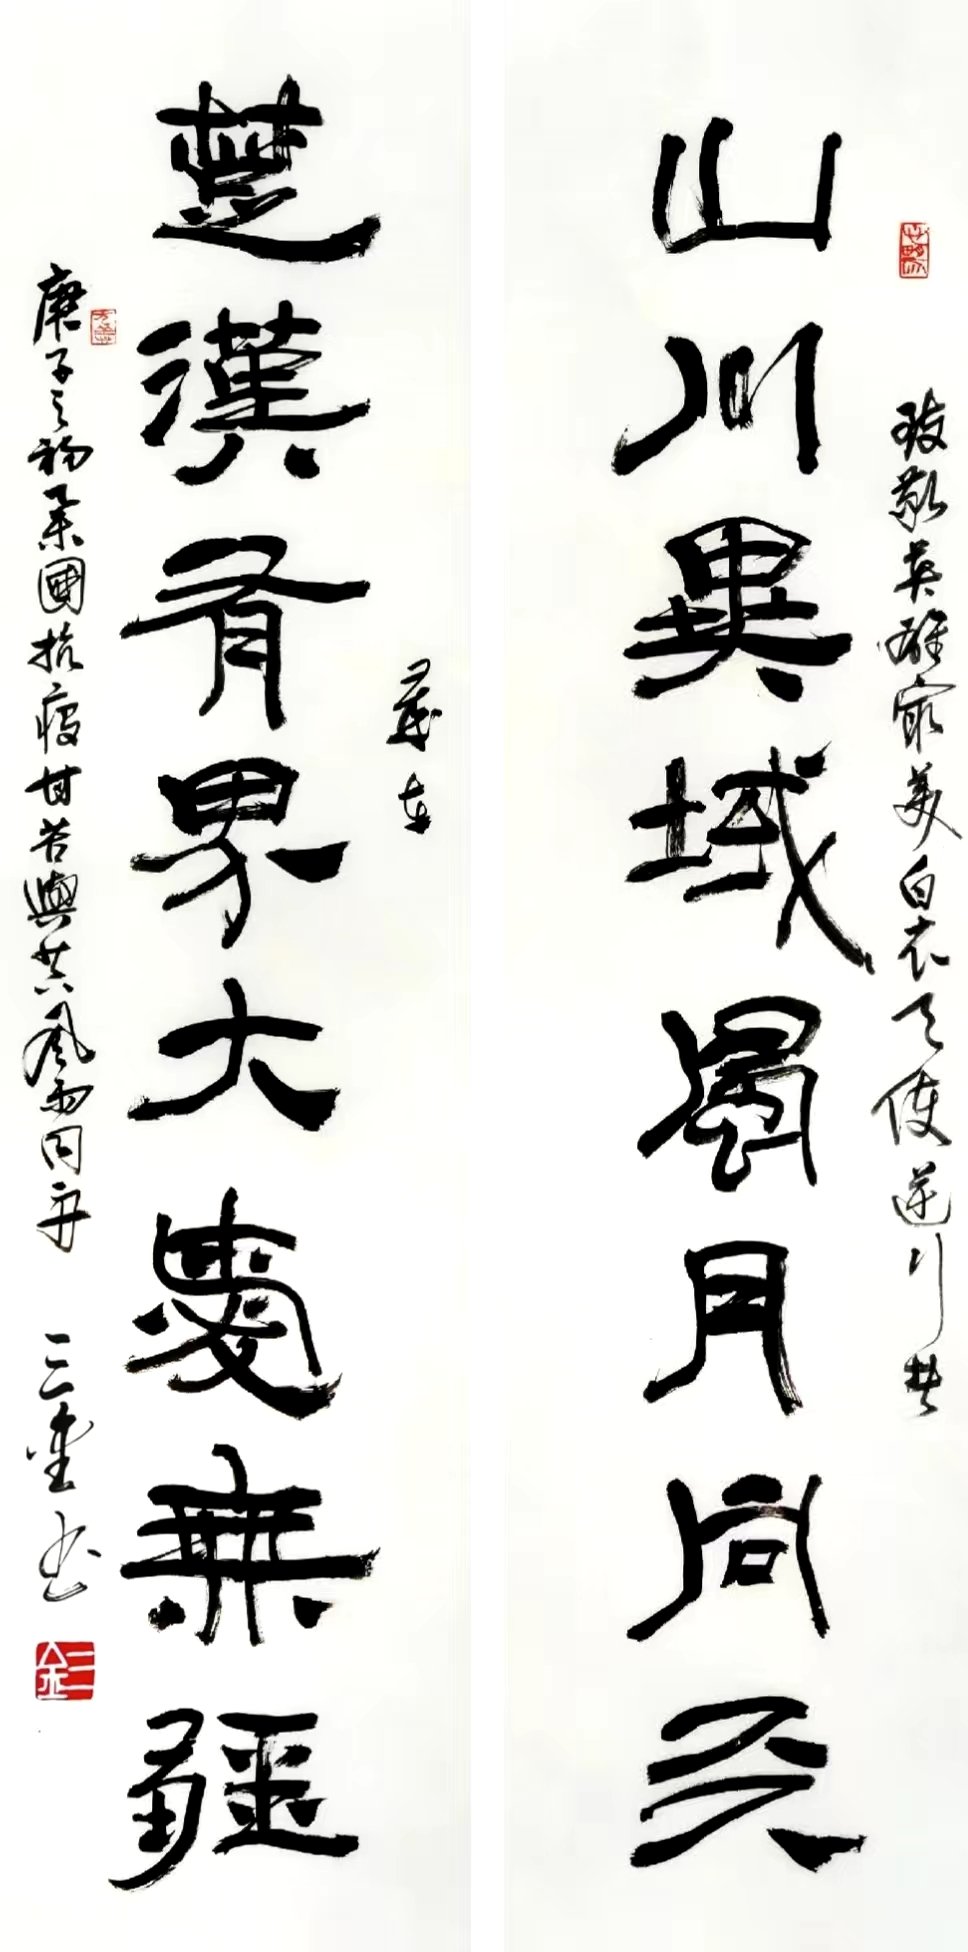 致敬英雄最美白衣天使逆行者
山川異域風月同天
楚漢有界大愛無疆
庚子之初舉國抗疫甘苦與共風雨同舟 三金書
三金